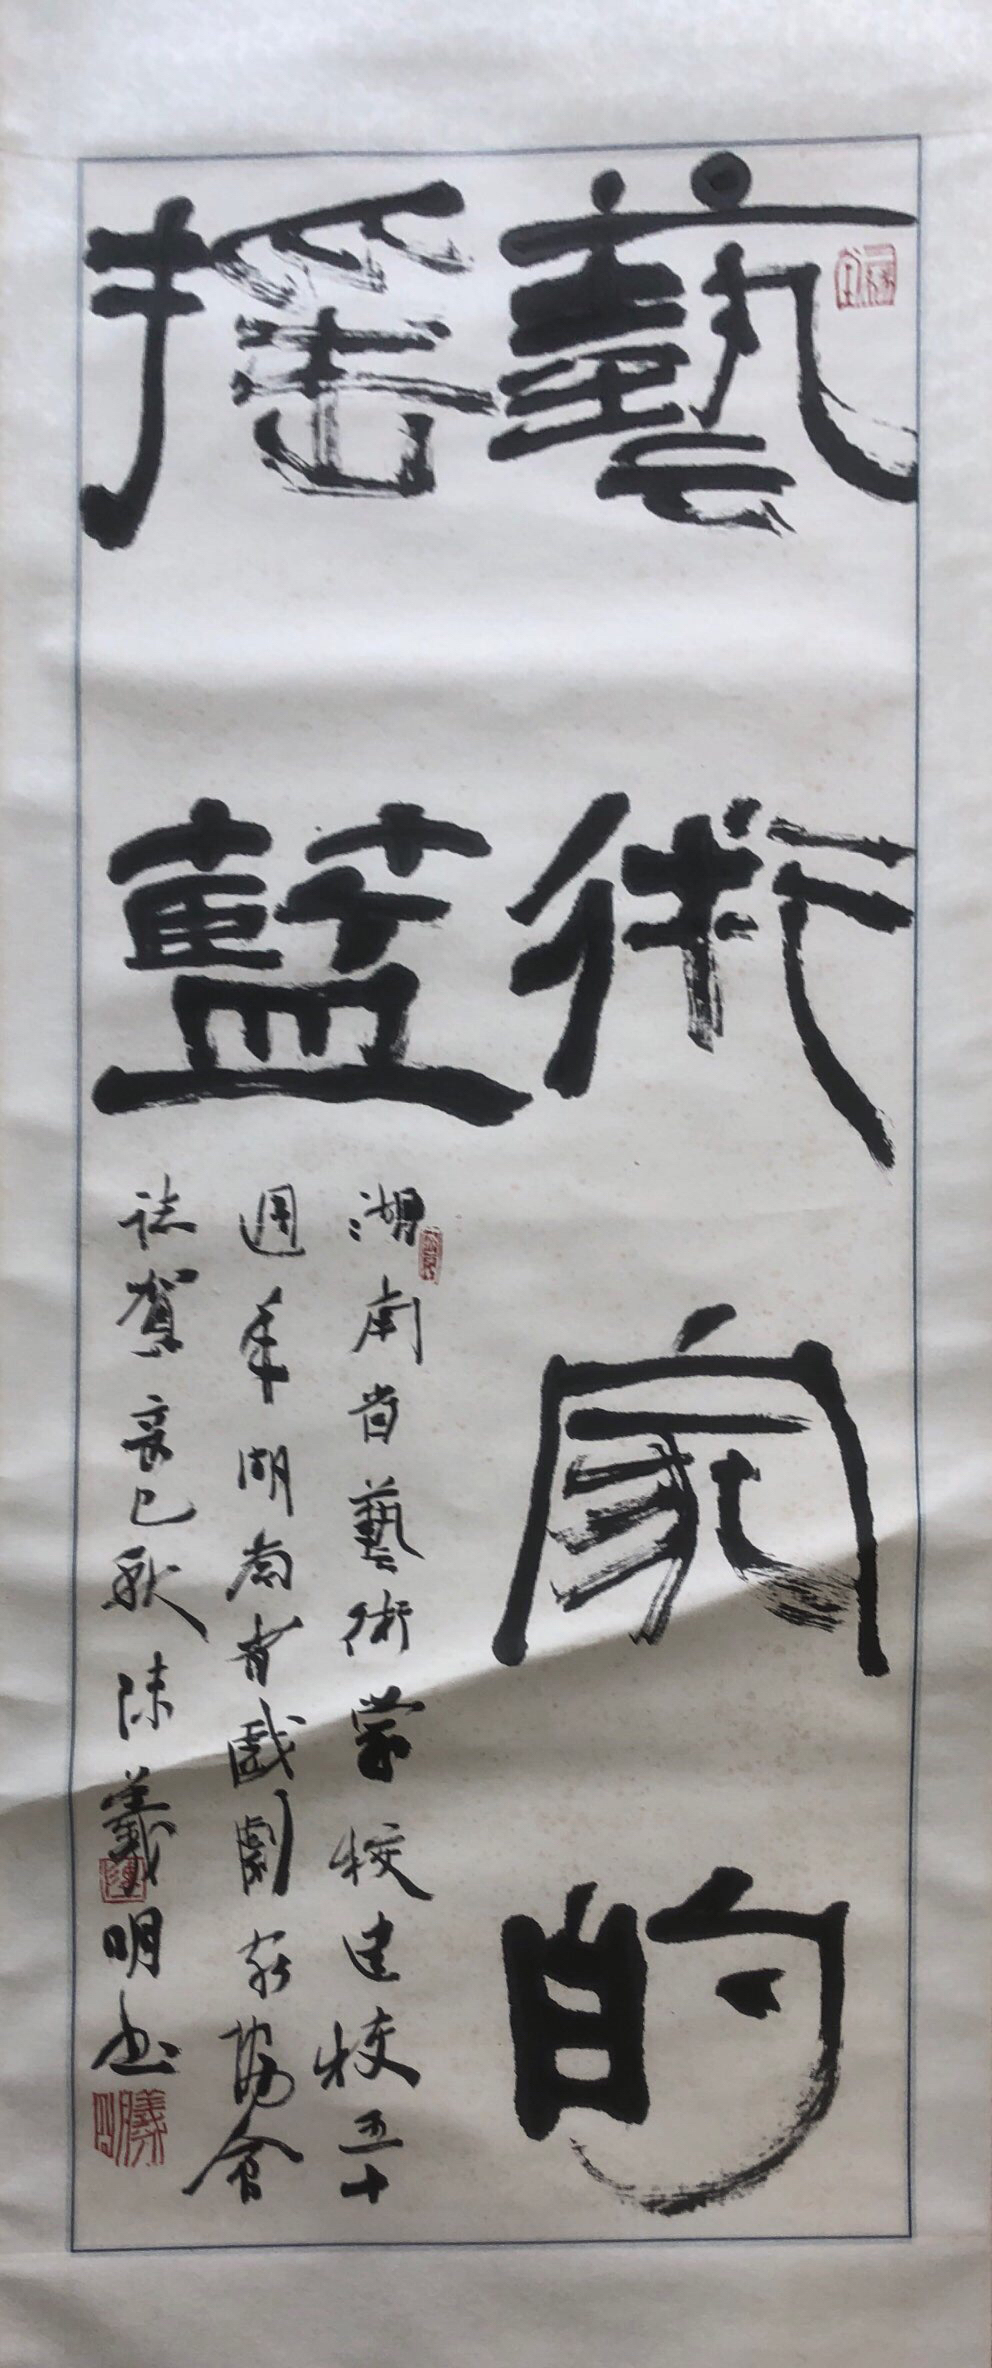 藝術家的
搖藍
湖南省藝術學校建校五十
週年湖南省戲劇家協會
誌賀辛巳秋陳羲明書